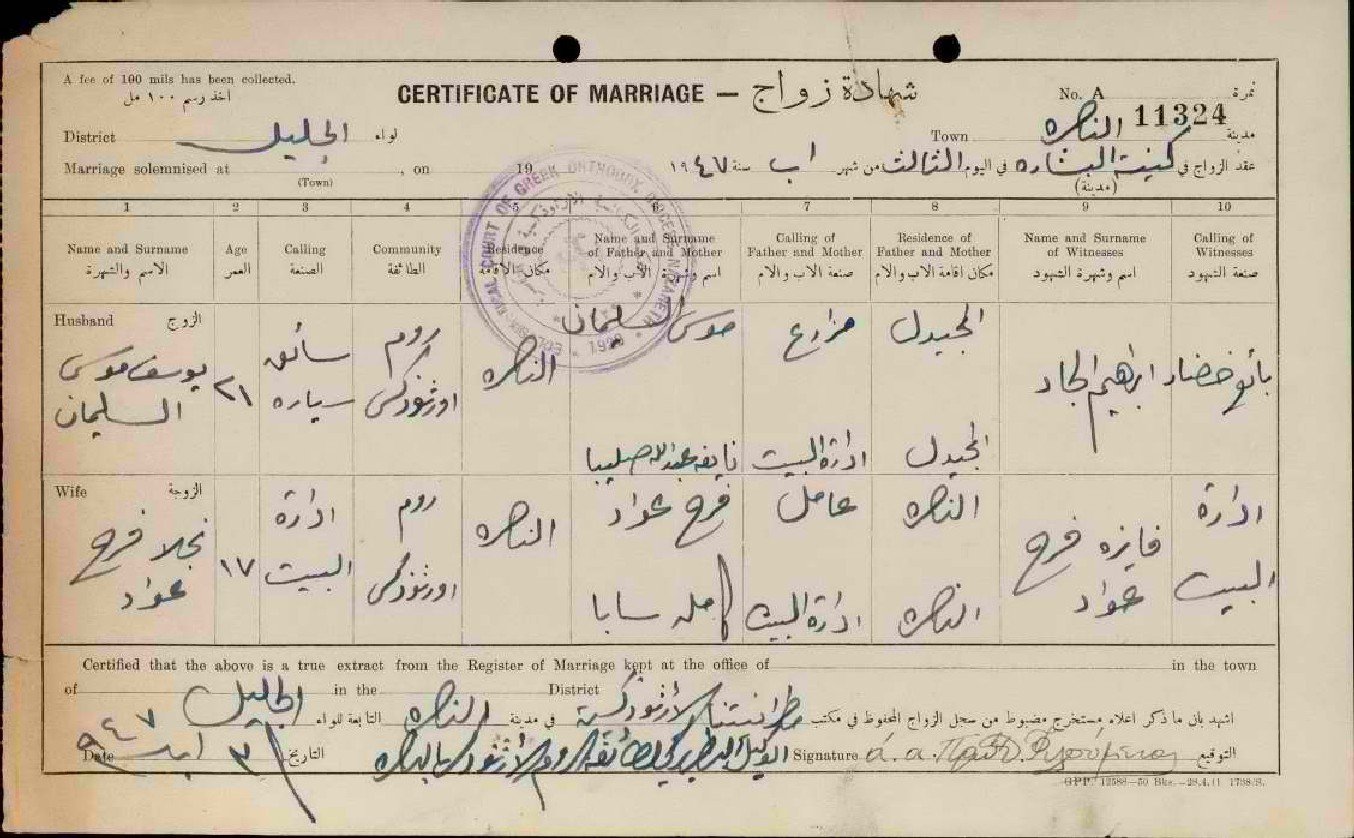 A fee of 100 mils has been collected.
اخذ رسم ١٠٠ مل
CERTIFICATE OF MARRIAGE — شهادة زواج
No. A 11324 نمرة
District الجليل لواء
Town الناصره مدينة
Marriage solemnised at , on 19
(Town)
عقد الزواج في كنيسة البشاره في اليوم الثالث من شهر اب سنة ١٩٤٧
(مدينة)
1 2 3 4 5 6 7 8 9 10
Name and Surname
الاسم والشهرة
Age
العمر
Calling
الصنعة
Community
الطائفة
Residence
مكان الاقامة
Name and Surname
of Father and Mother
اسم وشهرة الاب والام
Calling of
Father and Mother
صنعة الاب والام
Residence of
Father and Mother
مكان اقامة الاب والام
Name and Surname
of Witnesses
اسم وشهرة الشهود
Calling of
Witnesses
صنعة الشهود
Husband الزوج
يوسف موسى
السليمان
٢١
سائق
سياره
روم
اورثوذكس
الناصره
موسى السليمان
نايفه عبدالله صليبا
مزارع
ادارة البيت
المجيدل
المجيدل
ابراهيم الحاد
بائع خضار
Wife الزوجة
نجلا فرح
عواد
١٧
ادارة
البيت
روم
اورثوذكس
الناصره
فرح عواد
كامله سابا
عامل
ادارة البيت
الناصره
الناصره
فايزه فرح
عواد
ادارة
البيت
Certified that the above is a true extract from the Register of Marriage kept at the office of in the town
of in the District
اشهد بان ما ذكر اعلاه مستخرج مضبوط من سجل الزواج المحفوظ في مكتب الارثوذكسية في مدينة الناصره التابعة للواء الجليل
Date ٣ اب ٩٤٧ التاريخ
الروم الارثوذكس بالناصره
Signature التوقيع
GREEK ORTHODOX
NAZARETH